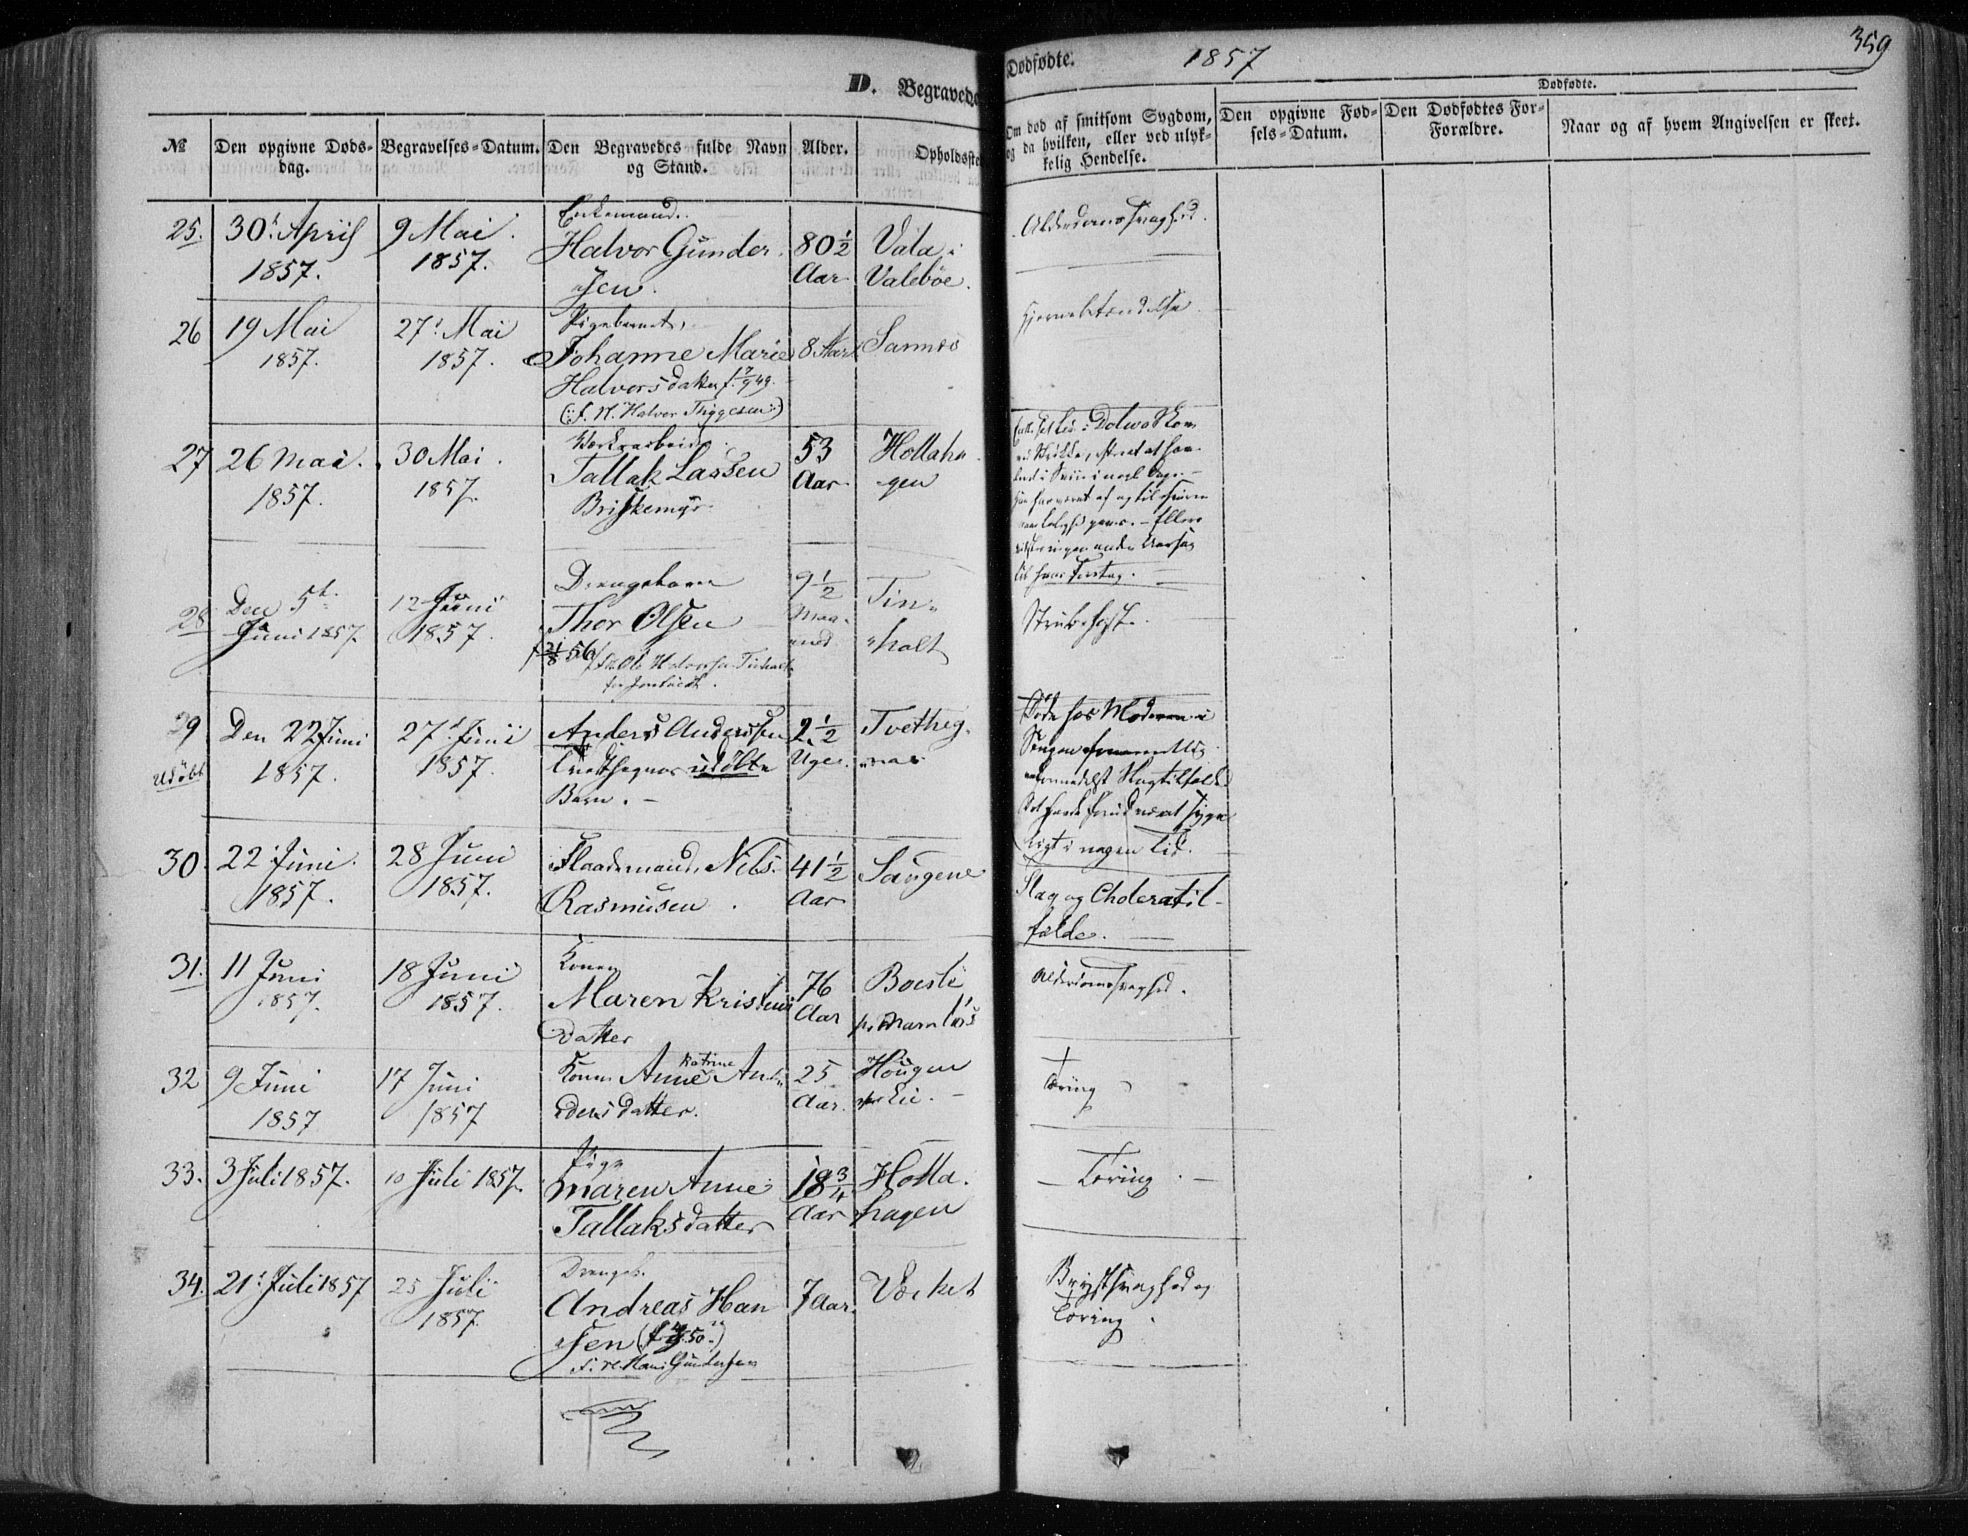 D. Begravede
Dødfødte.
1857
359
Dødfødte.
№
Den opgivne Døds-
dag.
Begravelses-Datum.
Den Begravedes fulde Navn
og Stand.
Alder.
Opholdsste
Om død af smitsom Sygdom,
og da hvilken, eller ved ulyk-
kelig Hendelse.
Den opgivne Fød-
sels-Datum.
Den Dødfødtes For-
Forældre.
Naar og af hvem Angivelsen er skeet.
25.
30t April
1857.
9 Mai.
1857.
Enkemand.
Halvor Gunder-
sen.
80 1/2
Aar.
Vala i
Valebøe.
Alderdomssvaghed.
26
19 Mai
1857.
27t Mai
1857.
Pigebarnet,
Johanne Marie
Halvorsdatter f.
(: f. N. Halvor Thygesen :)
8 Aar
Sannes
Hjernebetændelse
27
26 Mai.
1857.
30 Mai.
1857.
Værksarbeider
Tallak Lassen
Briskemyr.
53
Aar.
Hollaha
gen
28
Den 5t.
Juni 1857.
12 Juni
1857.
Drengebarn
Thor Olsen
f. 21/8 56
9 1/2
Maa-
ned.
Tin-
holt
Strubehoste.
29
Udøbt
Den 22 Juni
1857.
27t Juni
1857.
Anders Anderssen
Tvethegnas udøbte
Barn. –
2 1/2
Uger.
Tvetheg-
nas
Døde hos Moderen i
Sengen
Slagtilfælde
Det havde forud været syge
ligt i nogen Tid.
30.
22 Juni.
1857.
28 Juni
1857.
Flaademand, Niels
Rasmusen.
41 1/2
Aar
Saugene
Slag og Choleratil-
fælde.
31.
11 Juni
1857.
18 Juni
1857.
Konen
Maren Kristens
datter
76
Aar
Boesle
Alderdomssvaghed.
32
9 Juni
1857
17 Juni
1857
Konen Anne Katrine An-
dersdatter.
25
Aar.
Hougen
Eie. –
Tæring
33.
3 Juli 1857.
10 Juli 1857.
Pige
Maren Anne
Tallaksdatter
18 3/4
Aar
Holla.
hagen
– Tæring. –
34.
21t Juli 1857
25 Juli
1857.
Drengeb.
Andreas Han
sen
f. N. Hans Gundersen
7 Aar.
Værket
Brystsvaghed og
Tæring.